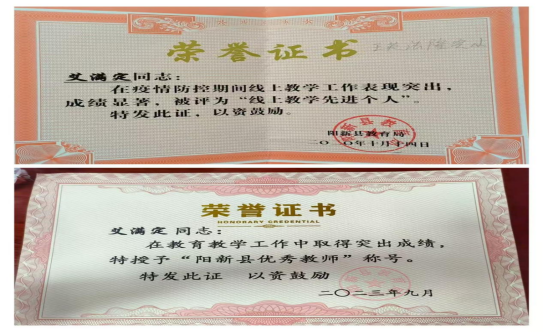 荣誉证书
艾满定同志：
在疫情防控期间线上教学工作表现突出，
成绩显著，被评为“线上教学先进个人”。
特发此证，以资鼓励。
阳新县教育局
二〇二〇年十月十四日
荣誉证书
HONORARY CREDENTIAL
艾满定同志：
在教育教学工作中取得突出成绩，
特授予“阳新县优秀教师”称号。
特发此证 以资鼓励
二〇二三年九月